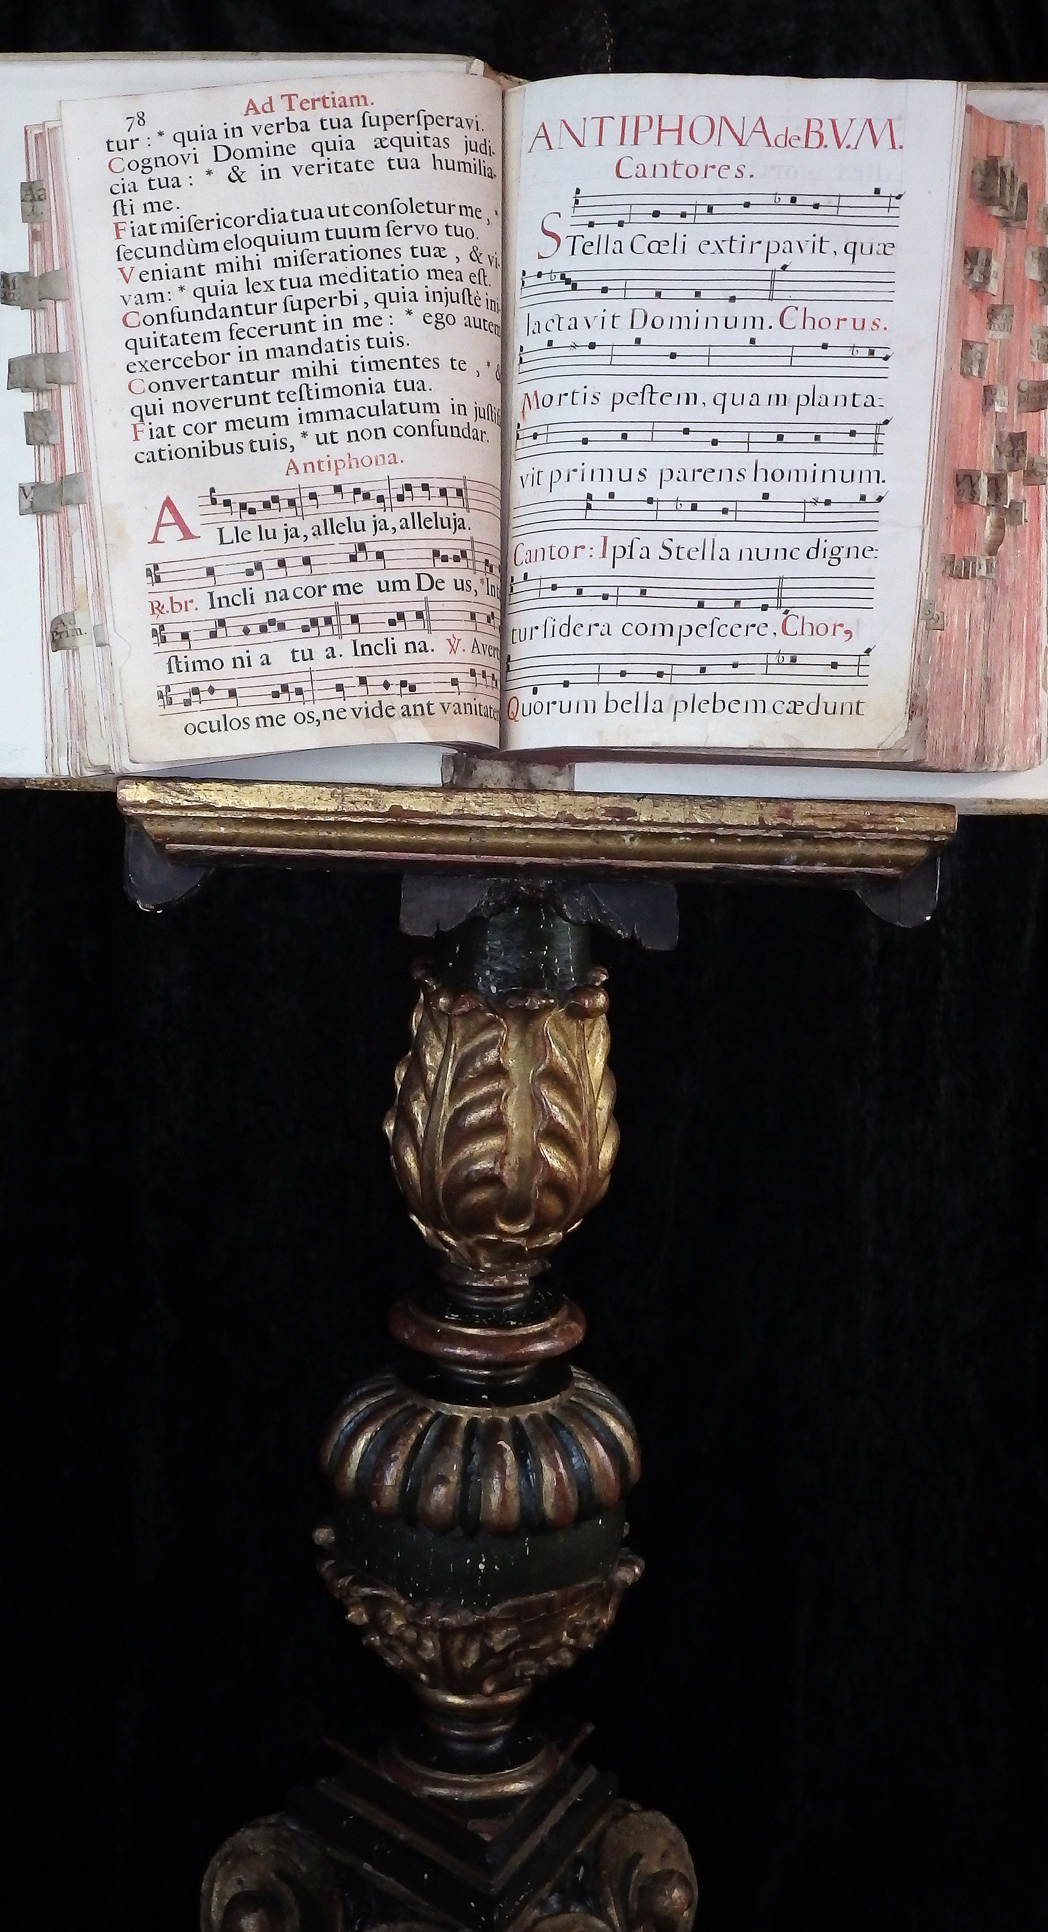 78
Ad Tertiam.
tur : * quia in verba tua ſuperſperavi.
Cognovi Domine quia æquitas judi-
cia tua : * & in veritate tua humilia-
ſti me.
Fiat miſericordia tua ut conſoletur me , *
ſecundùm eloquium tuum ſervo tuo.
Veniant mihi miſerationes tuæ , & vi-
vam : * quia lex tua meditatio mea eſt.
Confundantur ſuperbi , quia injuſtè ini-
quitatem fecerunt in me : * ego autem
exercebor in mandatis tuis.
Convertantur mihi timentes te , * &
qui noverunt teſtimonia tua.
Fiat cor meum immaculatum in juſtifi
cationibus tuis, * ut non confundar.
Antiphona.
ALle lu ja, allelu ja, alleluja.
℟.br. Incli na cor me um De us, * In
ſtimo ni a tu a. Incli na. ℣. Avert
oculos me os, ne vide ant vanitate
ANTIPHONA de B.V.M.
Cantores.
STella Cœli extirpavit, quæ
lactavit Dominum. Chorus.
Mortis peſtem, quam planta-
vit primus parens hominum.
Cantor: Ipſa Stella nunc digne-
tur ſidera compeſcere, Chor,
Quorum bella plebem cædunt
Ad
Prim.